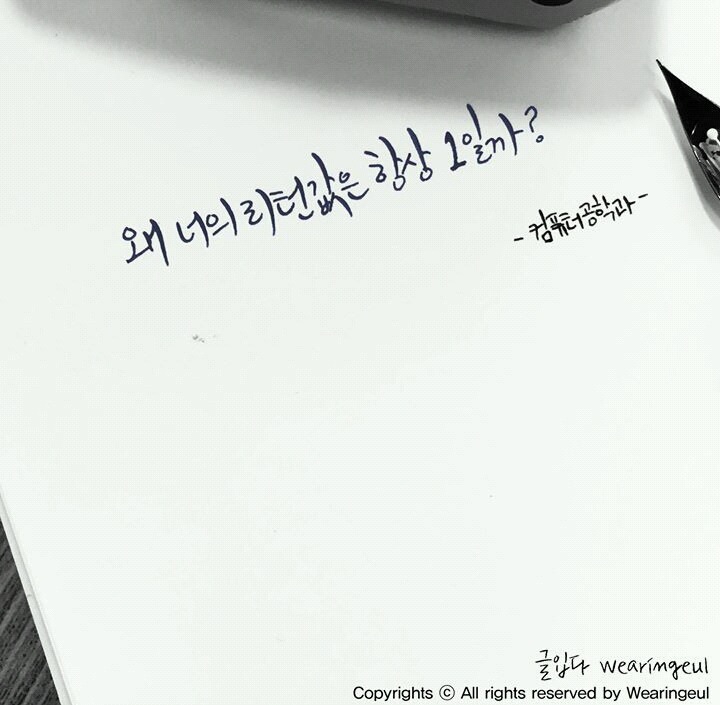 왜 너의 리턴값은 항상 1일까?
- 컴퓨터공학과 -
글입다 wearingeul
Copyrights ⓒ All rights reserved by Wearingeul